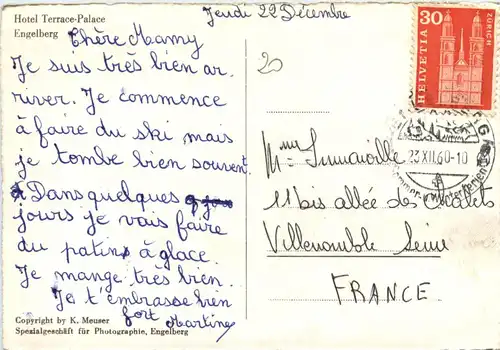 Hotel Terrace-Palace
Engelberg
Jeudi 22 Décembre
Chère Mamy
Je suis très bien ar
river. Je commence
à faire du ski mais
je tombe bien souvent.
Dans quelques
jours je vais faire
du patin à glace.
Je mange très bien.
Je t'embrasse bien
fort Martine
Copyright by K. Meuser
Spezialgeschäft für Photographie, Engelberg
20
30
HELVETIA
ZÜRICH
23.XII.60-10
Mme
11 bis allée des chalets
Villemomble Seine
FRANCE